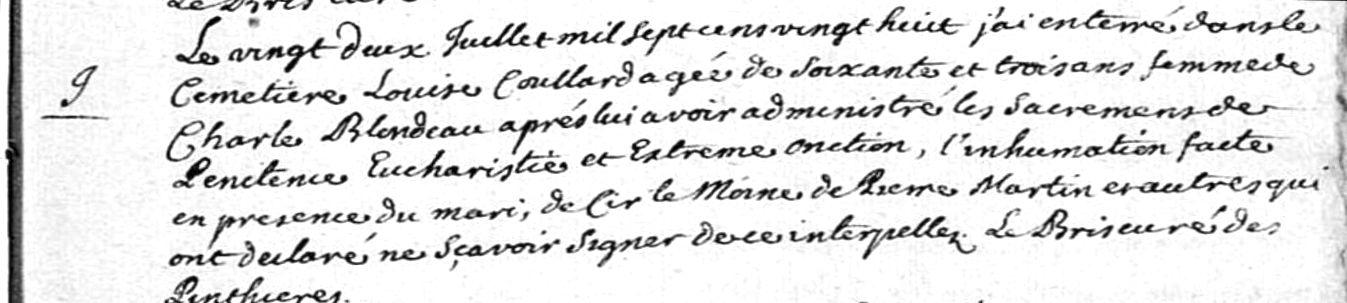 Le vingt deux Juillet mil sept cens vingt huit j'ai enterré dans le
9 Cemetiere Louise Coullard agée de soixante et trois ans femme de
Charle Blondeau aprés lui avoir administré les Sacremens de
Penitence Eucharistie et Extreme onction, l'inhumation faite
en presence du mari, de Cir le Moine de Pierre Martin et autres qui
ont declaré ne sçavoir signer de ce interpellez. Le Bris curé des
Penthieres.